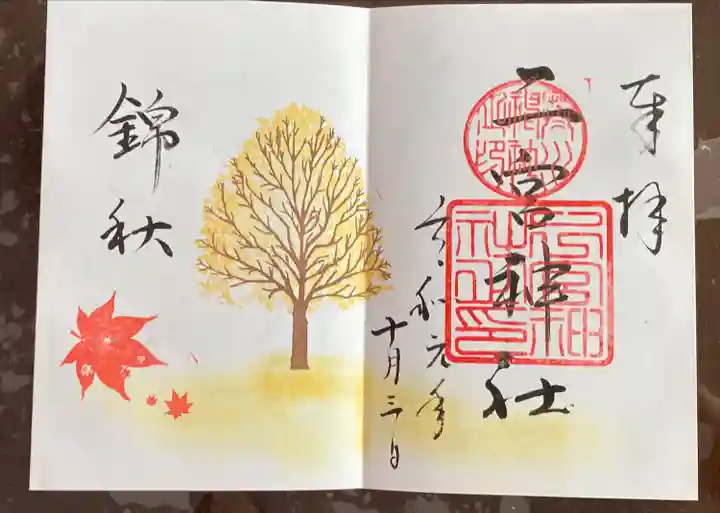 奉拝
二宮神社
令和元年
十月三日
錦秋